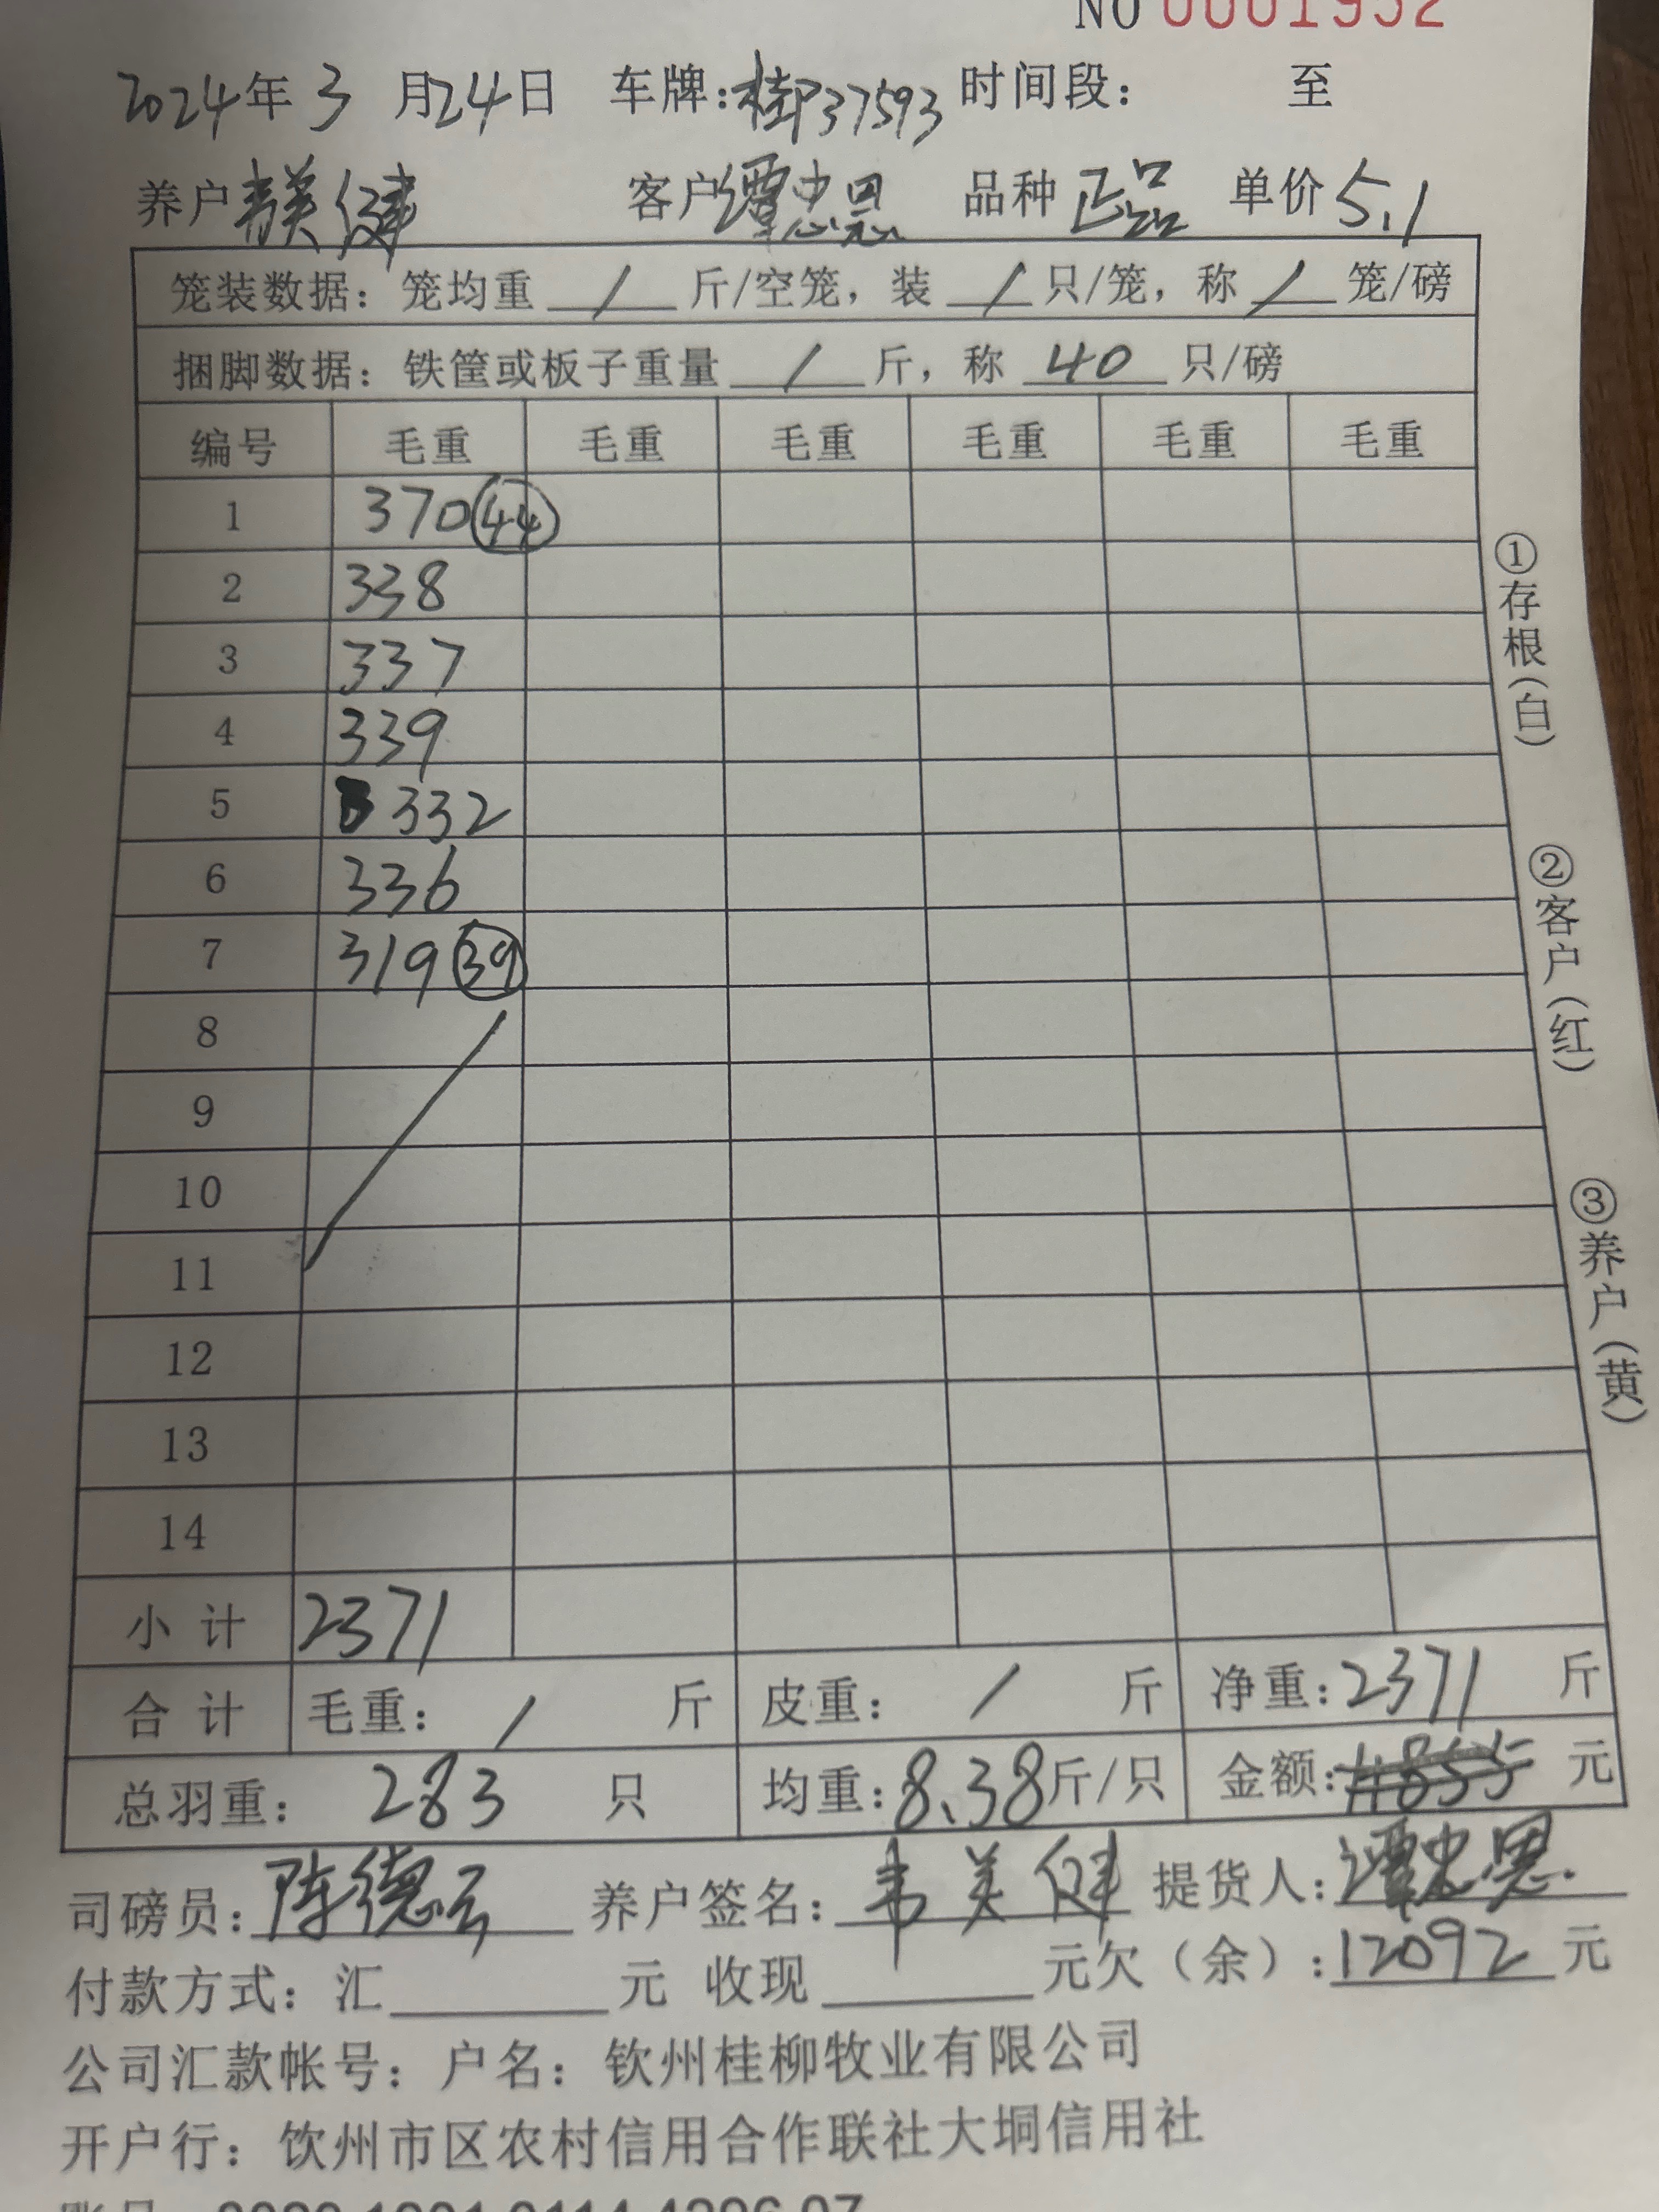 NO 0001952
2024年3月24日 车牌:桂P37593 时间段: 至
养户 韦美健 客户 谭忠恩 品种 正品 单价 5.1
笼装数据: 笼均重 / 斤/空笼, 装 / 只/笼, 称 / 笼/磅
捆脚数据: 铁筐或板子重量 / 斤, 称 40 只/磅
编号 毛重 毛重 毛重 毛重 毛重 毛重
1 370 44
2 338
3 337
4 339
5 332
6 336
7 319 39
8
9
10
11
12
13
14
小计 2371
合计 毛重: / 斤 皮重: / 斤 净重: 2371 斤
总羽重: 283 只 均重: 8.38 斤/只 金额: 元
司磅员: 陈德云 养户签名: 韦美健 提货人: 谭忠恩
付款方式: 汇 元 收现 元欠（余）: 12092 元
公司汇款帐号: 户名: 钦州桂柳牧业有限公司
开户行: 钦州市区农村信用合作联社大垌信用社
①存根（白）
②客户（红）
③养户（黄）